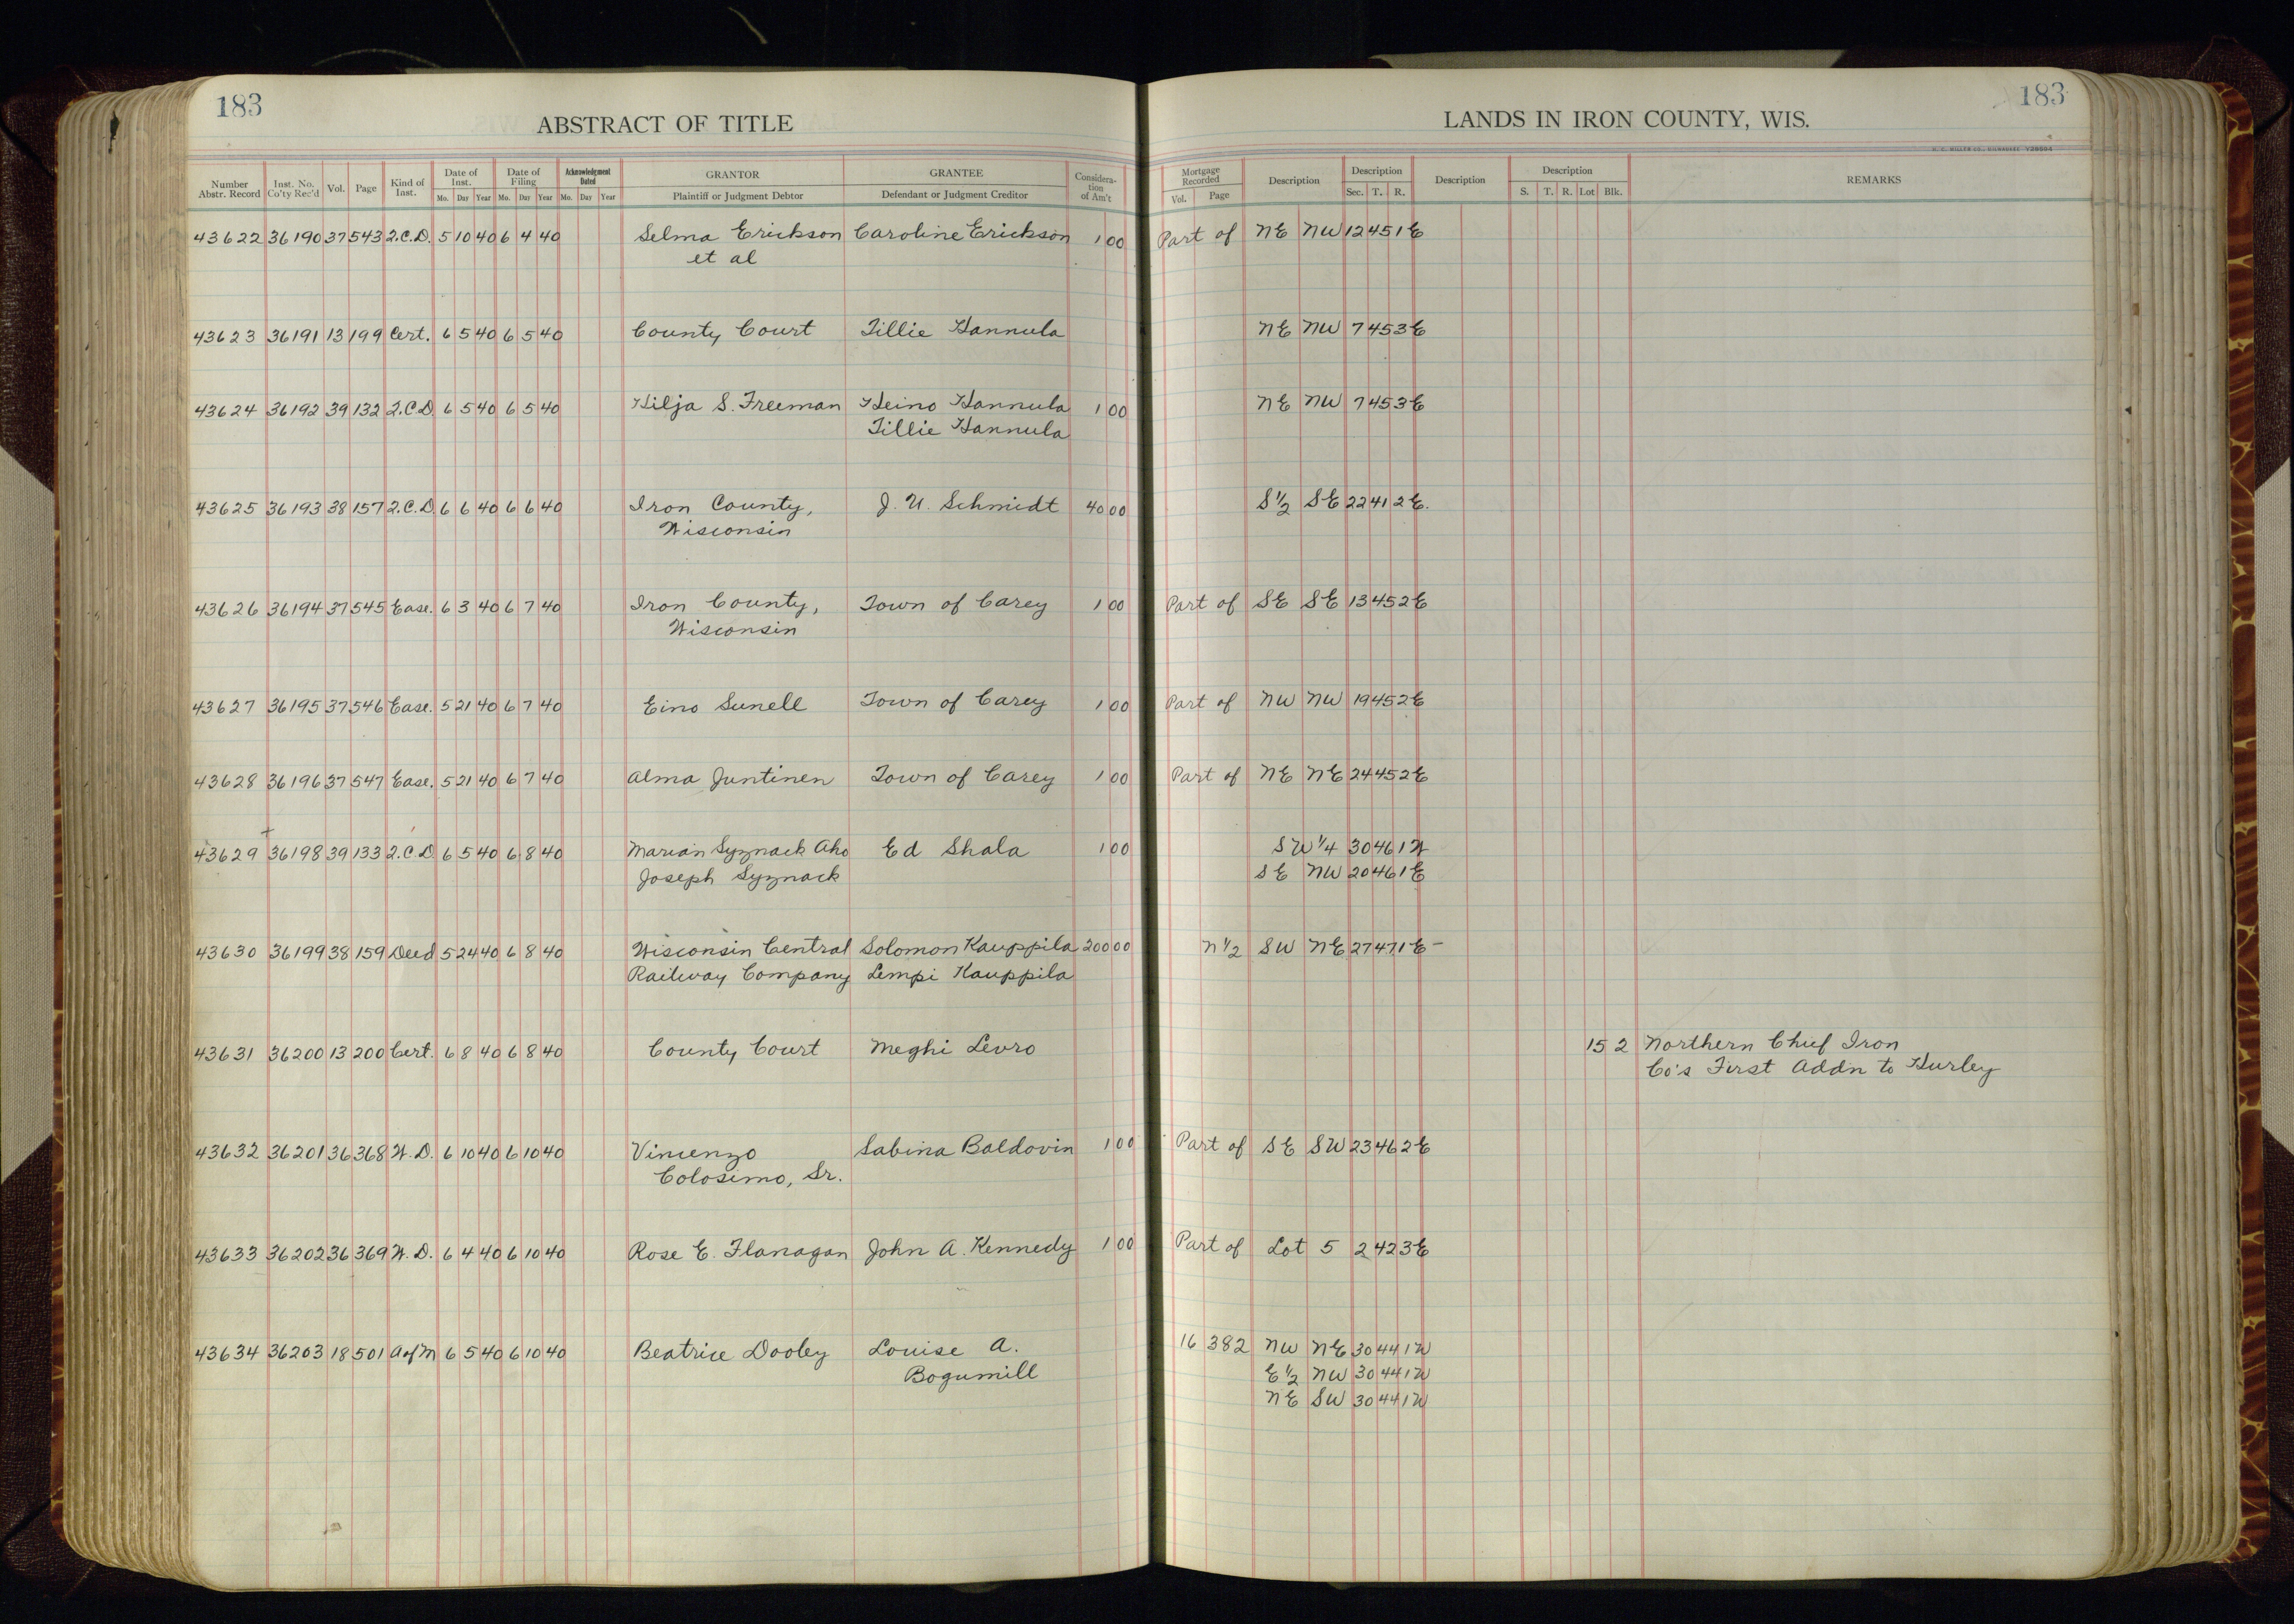 183
ABSTRACT OF TITLE
LANDS IN IRON COUNTY, WIS.
183
H. C. MILLER CO., MILWAUKEE Y28694
Number Abstr. Record | Inst. No. Co'ty Rec'd | Vol. | Page | Kind of Inst. | Date of Inst. Mo. Day Year | Date of Filing Mo. Day Year | Acknowledgment Dated Mo. Day Year | GRANTOR Plaintiff or Judgment Debtor | GRANTEE Defendant or Judgment Creditor | Considera-tion of Am't | Mortgage Recorded Vol. Page | Description | Description Sec. T. R. | Description | Description S. T. R. Lot Blk. | REMARKS
43622 36190 37 543 2.C.D. 5 10 40 6 4 40 Selma Erickson Caroline Erickson 1 00 Part of NE NW 12 45 1E
et al
43623 36191 13 199 Cert. 6 5 40 6 5 40 County Court Tillie Hannula NE NW 7 45 3E
43624 36192 39 132 2.C.D 6 5 40 6 5 40 Hilja S. Freeman Heino Hannula 1 00 NE NW 7 45 3E
Tillie Hannula
43625 36193 38 157 2.C.D 6 6 40 6 6 40 Iron County, J. U. Schmidt 40 00 S 1/2 SE 22 41 2E.
Wisconsin
43626 36194 37 545 Ease. 6 3 40 6 7 40 Iron County, Town of Carey 1 00 Part of SE SE 13 45 2E
Wisconsin
43627 36195 37 546 Ease. 5 21 40 6 7 40 Eino Sunell Town of Carey 1 00 Part of NW NW 19 45 2E
43628 36196 37 547 Ease. 5 21 40 6 7 40 Alma Juntinen Town of Carey 1 00 Part of NE NE 24 45 2E
43629 36198 39 133 2.C.D 6 5 40 6 8 40 Marian Syznack Aho Ed Shala 1 00 SW 1/4 30 46 1W
Joseph Syznack SE NW 20 46 1E
43630 36199 38 159 Deed 5 24 40 6 8 40 Wisconsin Central Solomon Kauppila 200 00 N 1/2 SW NE 27 47 1E –
Railway Company Lempi Kauppila
43631 36200 13 200 Cert. 6 8 40 6 8 40 County Court Meghi Levro 15 2 Northern Chief Iron
Co's First Addn to Hurley
43632 36201 36 368 W.D. 6 10 40 6 10 40 Vincenzo Sabina Baldovin 1 00 Part of SE SW 23 46 2E
Colosimo, Sr.
43633 36202 36 369 W.D. 6 4 40 6 10 40 Rose E. Flanagan John A. Kennedy 1 00 Part of Lot 5 2 42 3E
43634 36203 18 501 A of M 6 5 40 6 10 40 Beatrice Dooley Louise A. 16 382 NW NE 30 44 1W
Bogumill E 1/2 NW 30 44 1W
NE SW 30 44 1W